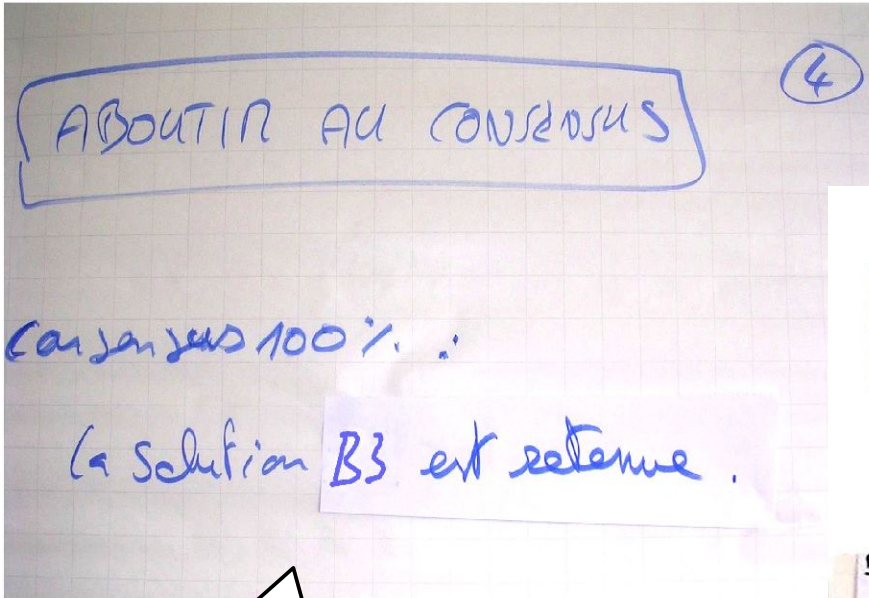 ABOUTIR AU CONSENSUS
4
Consensus 100% :
la solution B3 est retenue.